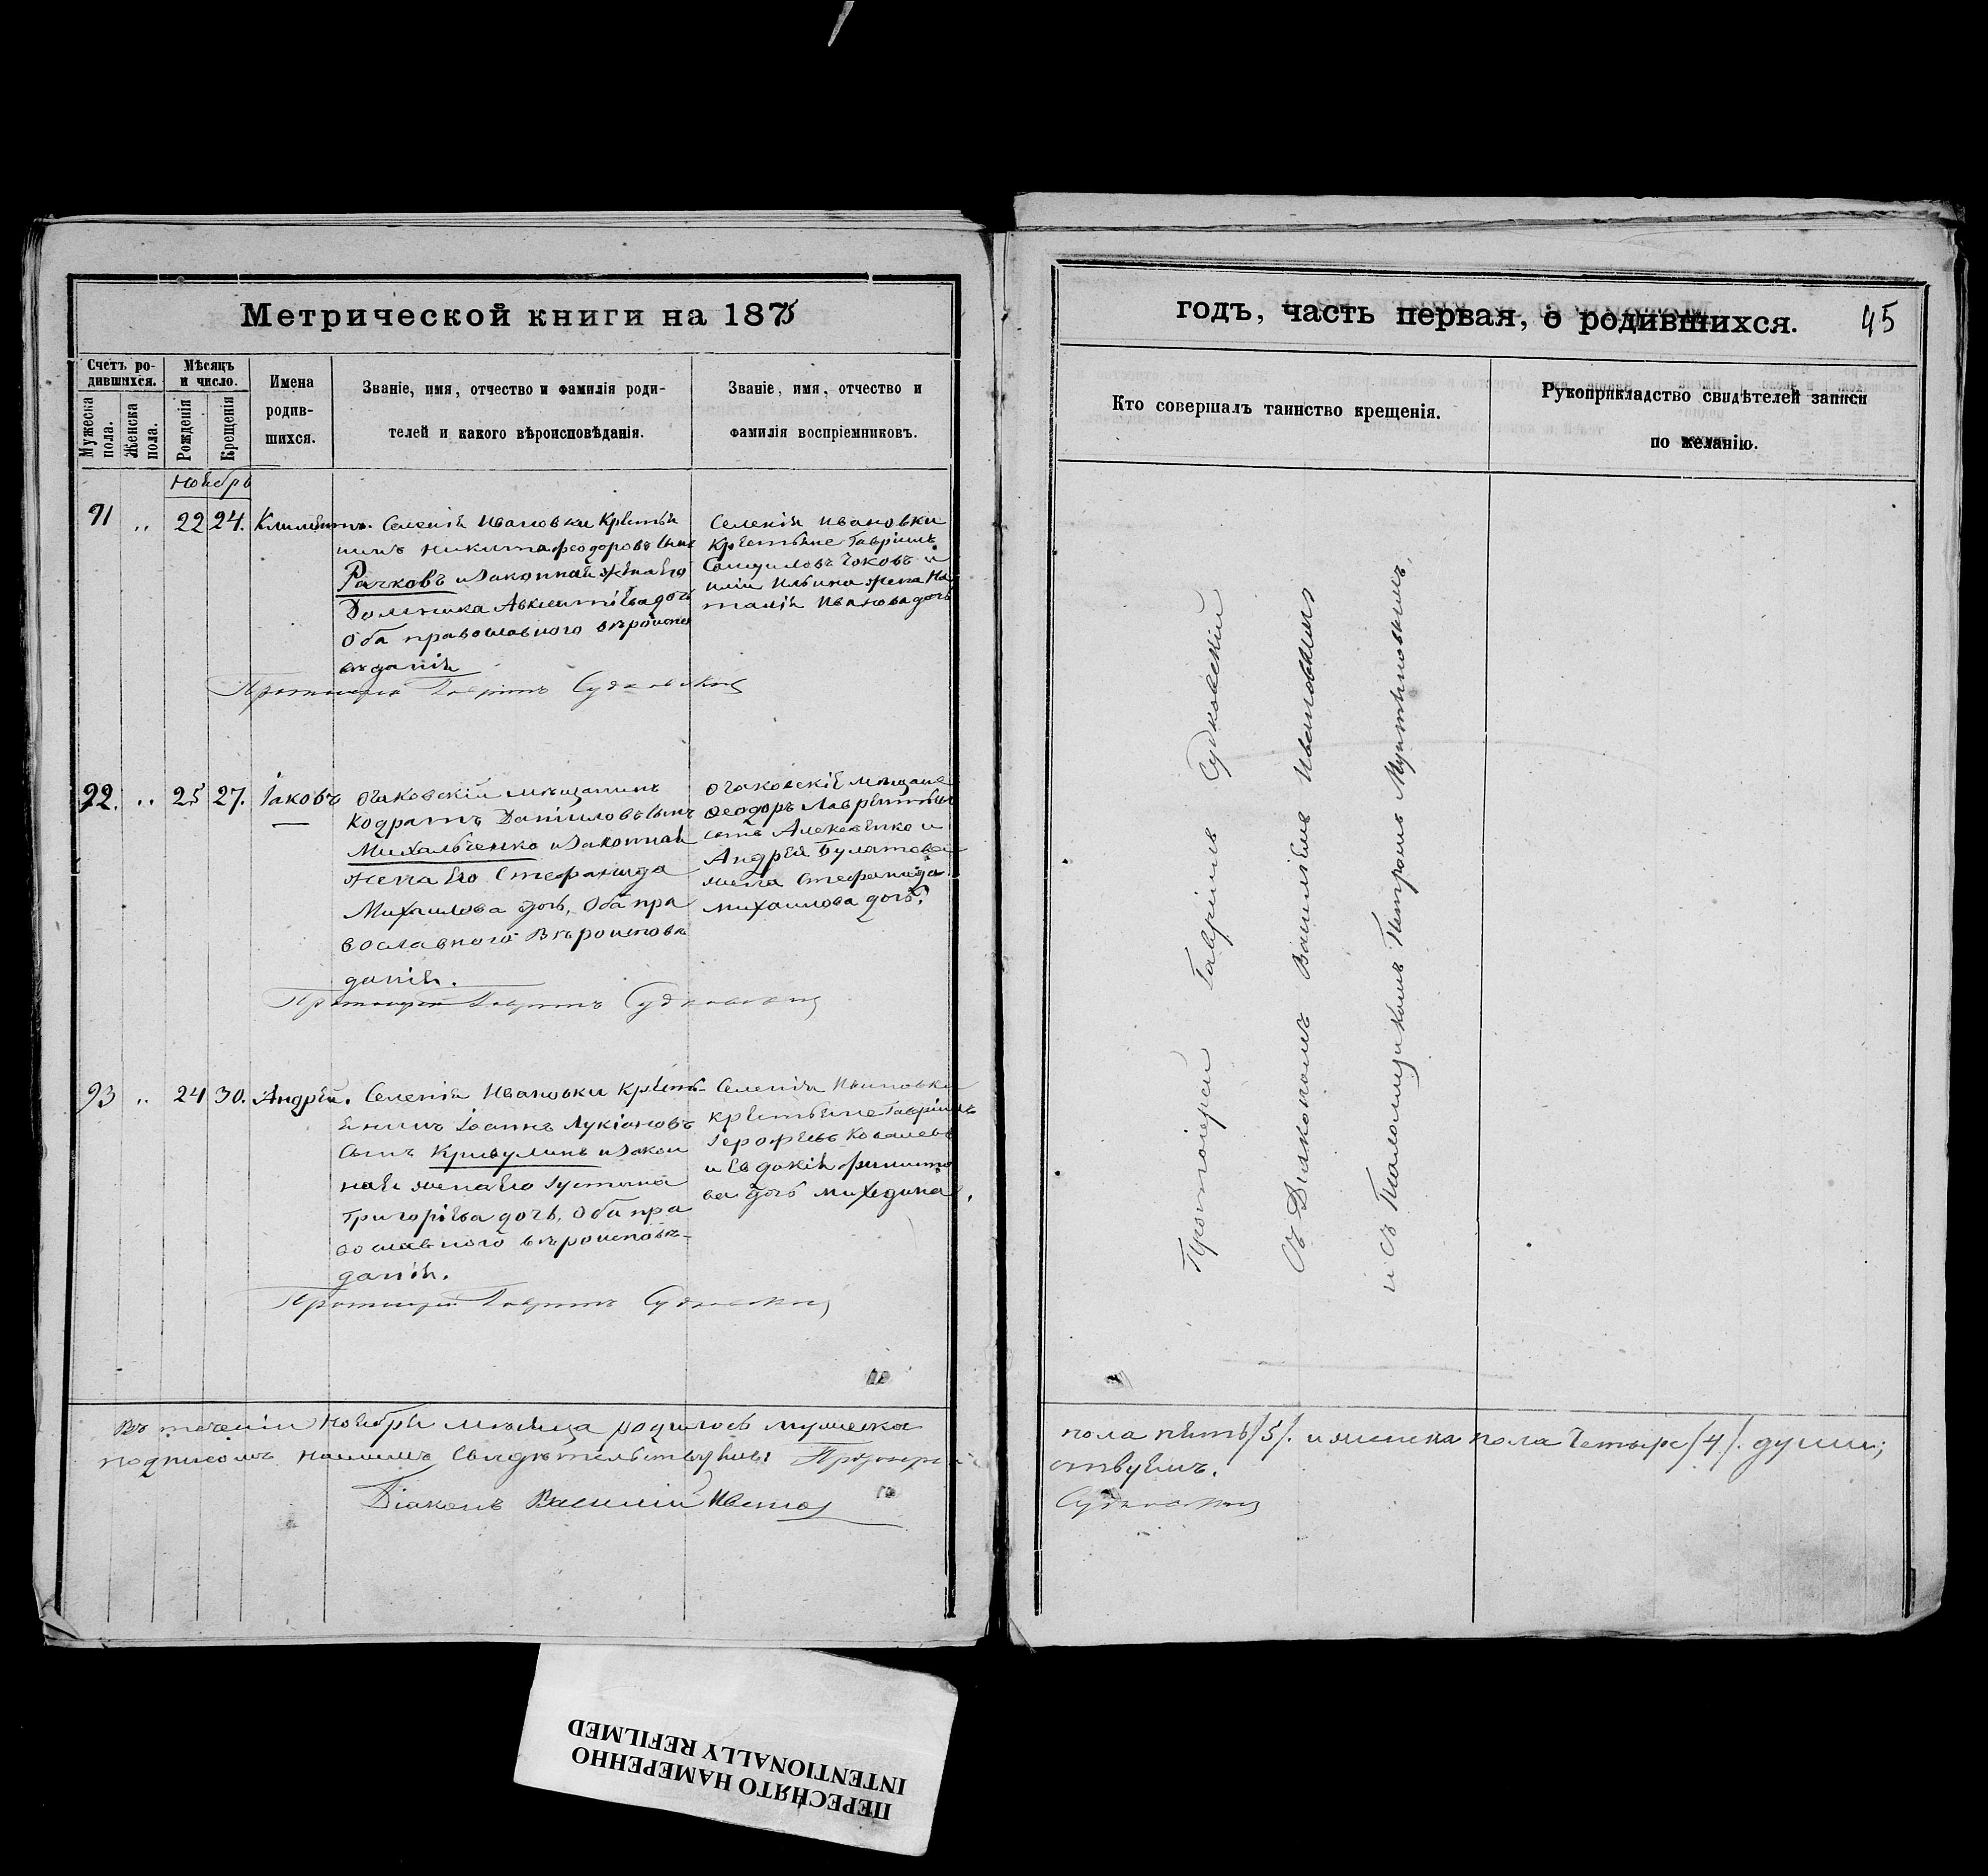 Метрической книги на 1875
Счетъ ро-
дившихся.
Мѣсяцъ
и число.
Мужеска
пола.
Женска
пола.
Рожденія
Крещенія
Имена
родив-
шихся.
Званіе, имя, отчество и фамилія роди-
телей и какого вѣроисповѣданія.
Званіе, имя, отчество и
фамилія воспріемниковъ.
Ноябрь
91 „ 22 24. Климентъ.
Селенія Ивановки Крестья
нинъ Никита Феодоровъ сынъ
Рачковъ и законная жена его
Домника
Оба православного вѣроиспо
вѣданія
Селенія Ивановки
Крестьяне Гавріилъ
Самуиловъ и
Ильина жена На
талія Иванова дочь
Протоіерей Гавріилъ Судковскій
92. „ 25 27. Іаковъ
Очаковскій мѣщанинъ
Кодратъ Даніиловъ сынъ
Михальченко и законная
жена его Стефанида
Михаилова дочь, Оба пра
вославного вѣроисповѣ
данія.
Очаковскіе мѣщане
Феодоръ Лаврентьевъ
сынъ Алексѣенко и
Андрея Булатова
жена Стефанида
Михаилова дочь.
Протоіерей Гавріилъ Судковскій
93 „ 24 30. Андрей.
Селенія Ивановки Кресть-
янинъ Іоаннъ Лукіановъ
сынъ Кривулинъ и закон
ная жена его Іустина
Григоріева дочь, Оба пра
вославного вѣроисповѣ-
данія.
Селенія Ивановки
крестьяне Гавріилъ
Ковалевъ
и Евдокія
ва дочь
Протоіерей Гавріилъ Судковскій
Въ теченіи Ноября мѣсяца родилось мужеска
подписомъ нашимъ Протоіерей
Діаконъ Василій
годъ, часть первая, о родившихся.
45
Кто совершалъ таинство крещенія.
Рукоприкладство свидѣтелей записи
по желанію.
Протоіерей Гавріилъ Судковскій
Съ Діакономъ Василіемъ
и съ Псаломщикомъ Петромъ
пола пять /5/. и женска пола четыре /4/. души;
ствуемъ.
Судковскій
ПЕРЕСНЯТО НАМЕРЕННО
INTENTIONALLY REFILMED